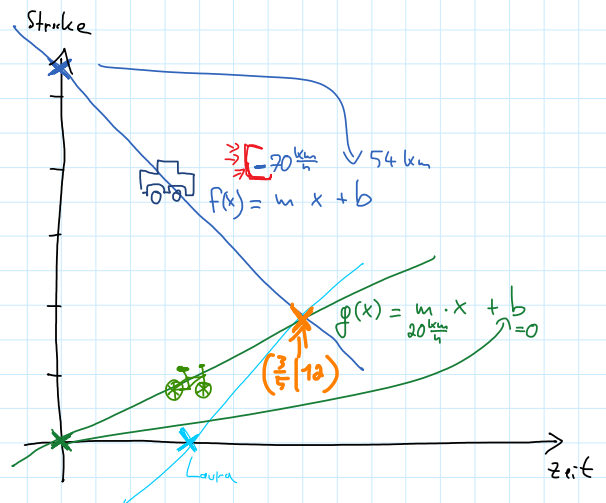 Strecke
-70 km/h
54 km
f(x) = m x + b
g(x) = m · x + b
20 km/h
=0
(3/5 | 12)
Laura
Zeit